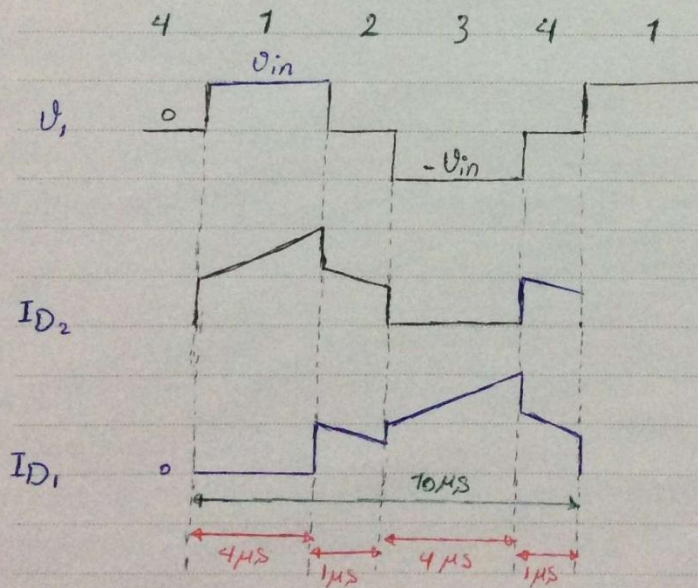 4 1 2 3 4 1
υin
υ₁ 0
-υin
I_D₂
I_D₁ 0
10μs
4μs 1μs 4μs 1μs